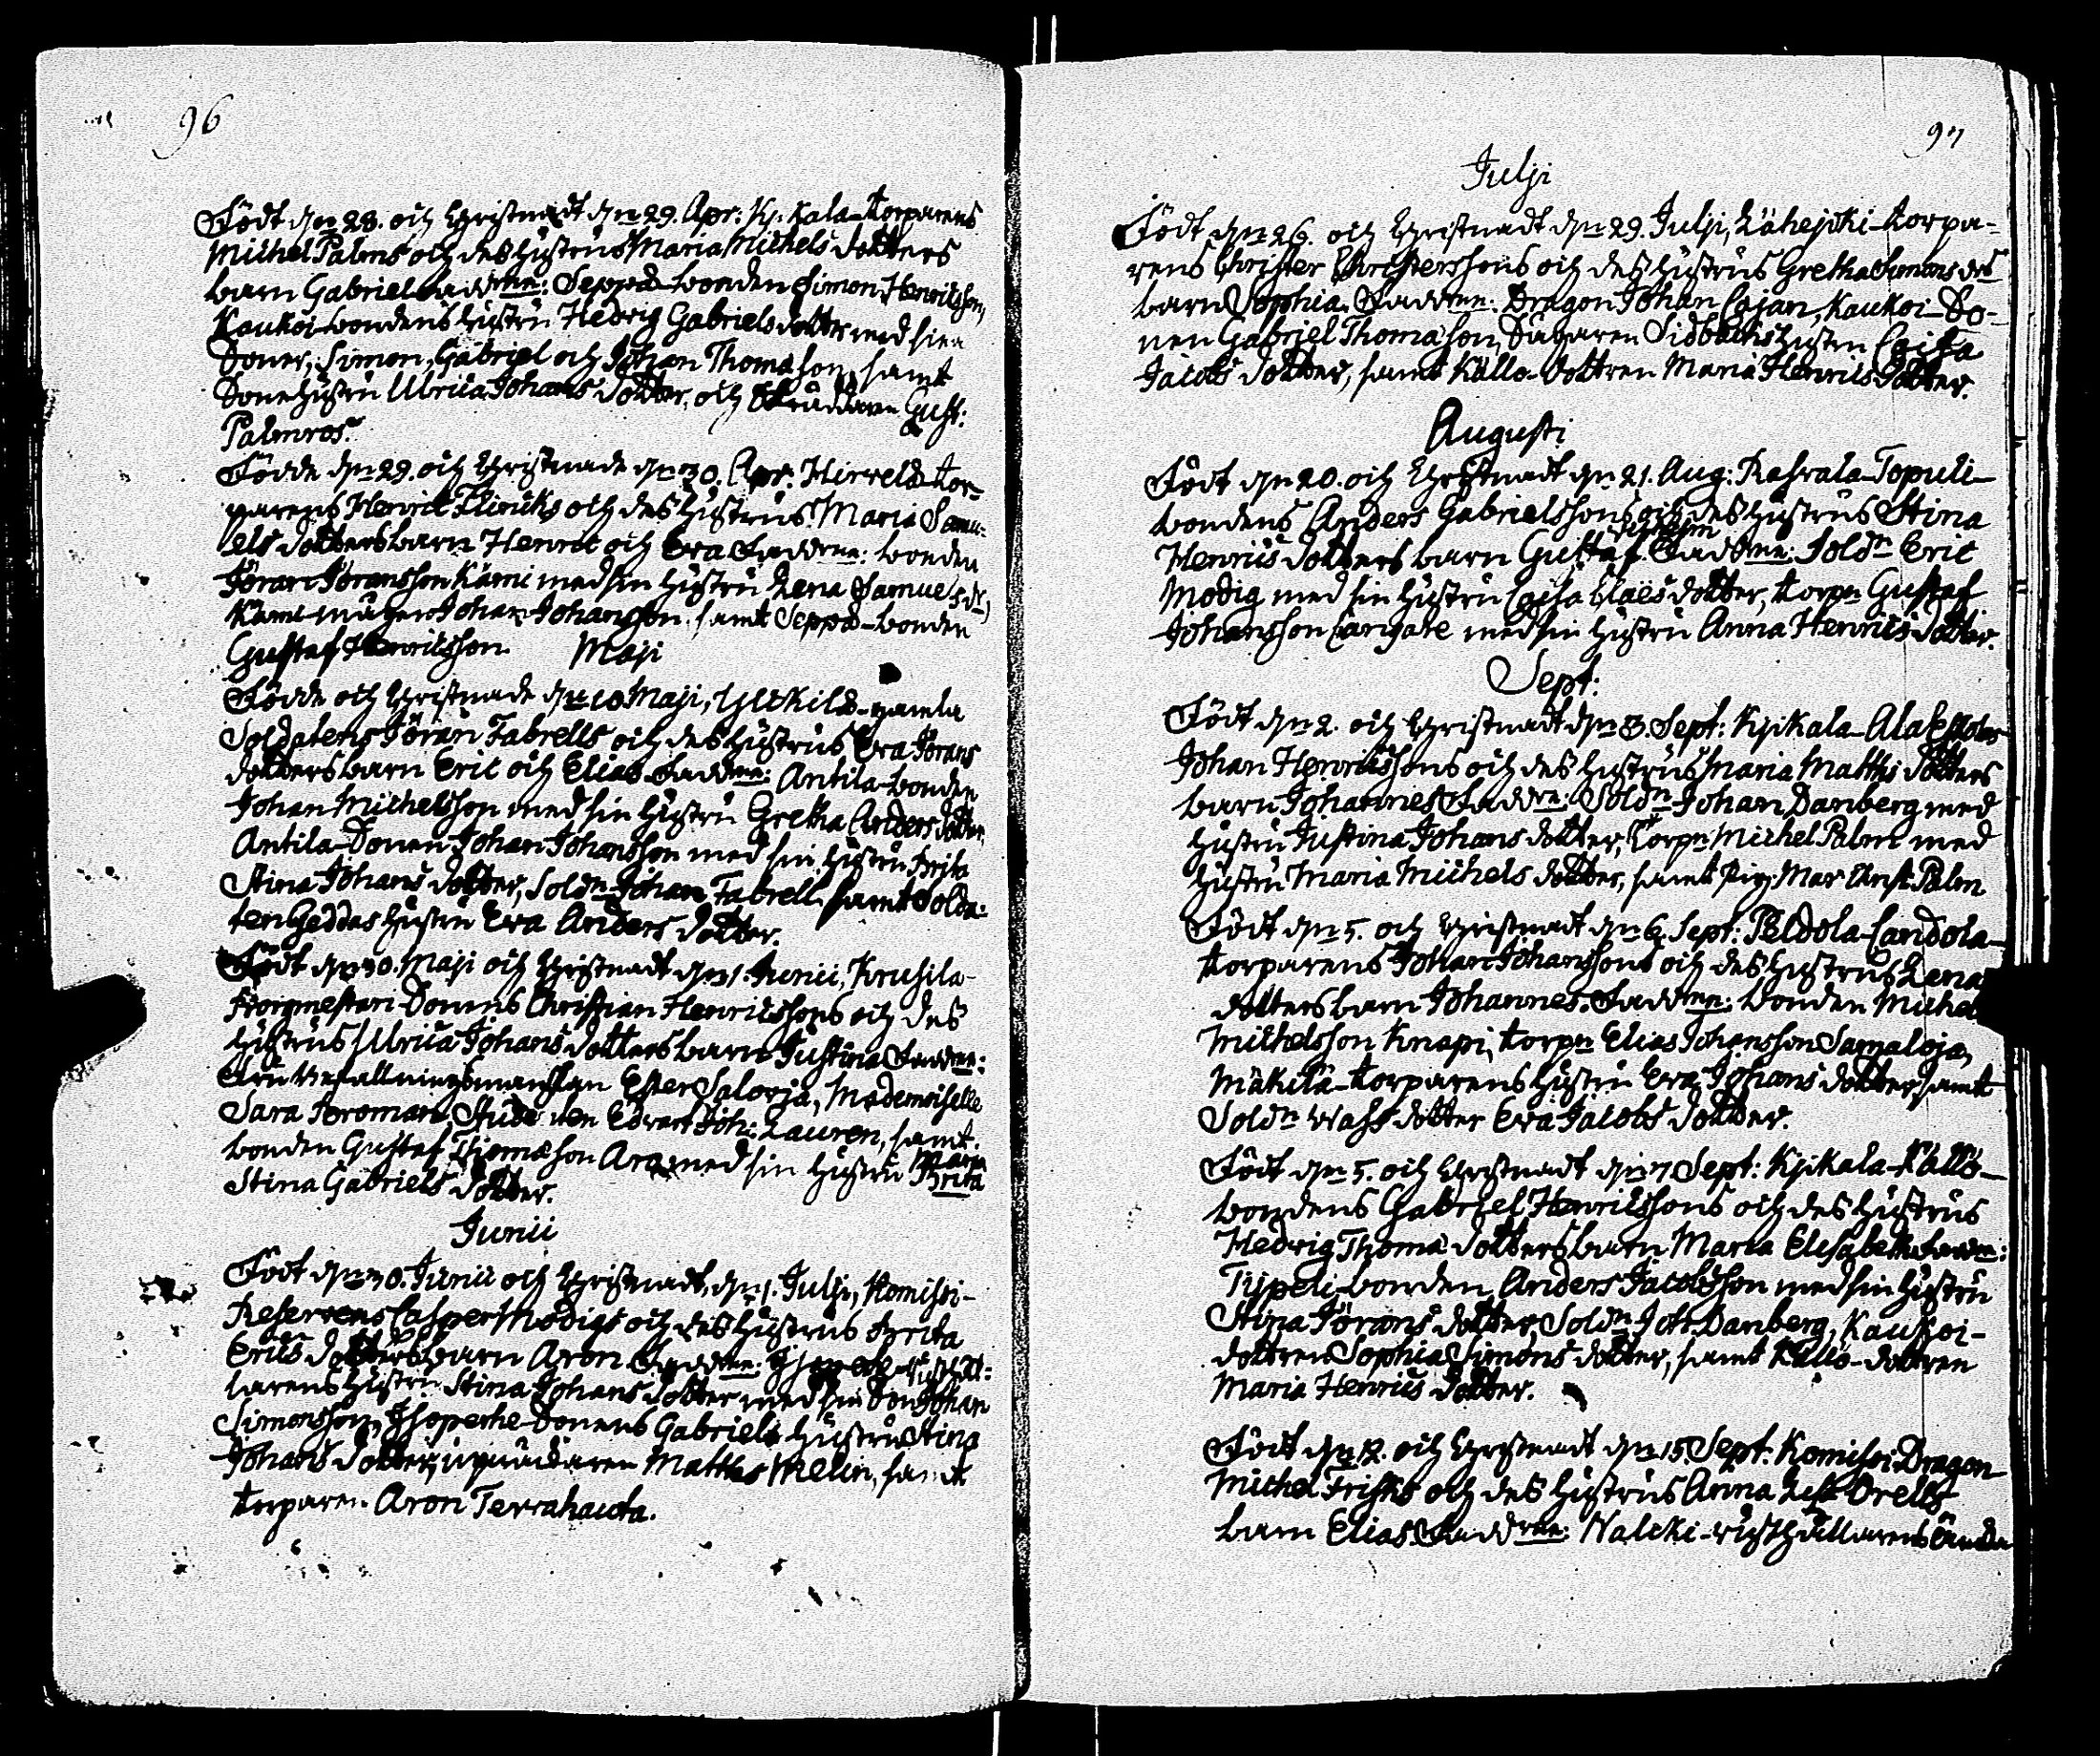 96
Födt d. 28. och Christnadt d. 29. Apr: Kj. Kala-torparens
Michel Palms och des Hustrus Maria Michels dotters
barn Gabriel Faddrne: Seppä-bonden Simon Henricsson,
Kaukoi-bondens Hustru Hedvig Gabriels dotter med sina
Söner, Simon, Gabriel och Johan Thomasson, samt
Sonehustru Ulrica Johans dotter, och Skräddaren Gust:
Palmros.
Födde d. 29. och Christnade d. 30. Apr: Hirvelä-tor-
parens Henric Flincks och des Hustrus Maria Samu-
els dotters barn Henric och Eva Faddrne: bonden
Jöran Jöransson Kämi med sin Hustru Lena Samuels dr,
Kämi-mågen Johan Johansson, samt Seppä-bonden
Gustaf Henricsson.
Maji
Födde och Christnade d. 10 Maji, gamla
Soldatens Jöran Fabrells och des Hustrus Eva Jörans
dotters barn Eric och Elias Faddrne: Antila-bonden
Johan Michelsson med sin Hustru Gretha Anders dotter,
Antila-Sonen Johan Johansson med sin Hustru Brita
Stina Johans dotter, Soldn Johan Fabrell, samt Solda-
ten Geddas Hustru Eva Anders dotter.
Födt d. 30. Maji och Christnadt d. 1. Junii, Krusila-
Borgmestari-Sonens Christian Henricssons och des
Hustrus Ulrica Johans dotters barn Justina Faddrne:
Fru Befallningsmanskan Ester Salovja, Mademoiselle
Sara Broman, Studenten Edvart Joh: Lauren, samt
bonden Gustaf Thomasson Aro med sin Hustru Maria
Brita
Stina Gabriels dotter.
Junii
Födt d. 30. Junii och Christnadt, d. 1. Julji, Komissi-
Reservens Casper Modigs och des Hustrus Brita
Erics dotters barn Aron Faddrne: Isoperhe-rusthål-
larens Hustru Stina Johans dotter med sin Son Johan
Simonsson, Isoperhe-Sonens Gabriels Hustru Stina
Johans dotter, Matths Melin, samt
torparen Aron Terrahauta.
97
Julji
Födt d. 26. och Christnadt d. 29. Julji, Lähejski-torpa-
rens Christer Christerssons och des Hustrus Gretha Simons drs
barn Sophia. Faddrne: Dragon Johan Cajan, Kaukoi-So-
nen Gabriel Thomasson, Sidbäcks Hustru Caisa
Jacobs dotter, samt Källo-dottren Maria Henrics dotter.
Augusti
Födt d. 20. och Christnadt d. 21. Aug: Rasvala-Topuli-
bondens Anders Gabrielssons och des Hustrus Stina
Henrics dotters barn Gustaf. Faddrne: Soldn Eric
Modig med sin Hustru Caisa Claës dotter, torpn Gustaf
Johansson Cangare med sin Hustru Anna Henrics dotter.
Sept:
Födt d. 2. och Christnadt d. 3. Sept: Kjikala-Ala
Johan Henricssons och des Hustrus Maria Matths dotters
barn Johannes Faddrne: Soldn Johan Danberg med
Hustru Justina Johans dotter, Torpn Michel Palm med
Hustru Maria Michels dotter, samt Pig: Mar Christ Palm
Födt d. 5. och Christnadt d. 6. Sept: Peldola-Candola-
torparens Johan Johanssons och des Hustrus Lena
dotters barn Johannes. Faddrne: bonden Michel
Michelsson Knapi, torpn Elias Johansson Samaloja,
Mäkilä-torparens Hustru Eva Johans dotter, samt
Soldn Wass dotter Eva Jacobs dotter.
Födt d. 5. och Christnadt d. 7. Sept: Kjikala-Källo-
bondens Gabriel Henricssons och des Hustrus
Hedvig Thoma dotters barn Maria Elisabeth. Faddrne:
Typeli-bonden, Anders Jacobsson med sin Hustru
Stina Jörans dotter, Soldn Joh: Danberg, Kaukoi-
dottren Sophia Simons dotter, samt Källo-dottren
Maria Henrics dotter.
Födt d. 12. och Christnadt d. 15. Sept: Komissi-Dragon
Michel Frisks och des Hustrus Anna Lest Orells
barn Elias. Faddrne: Nalcki-rusthållarens Enka